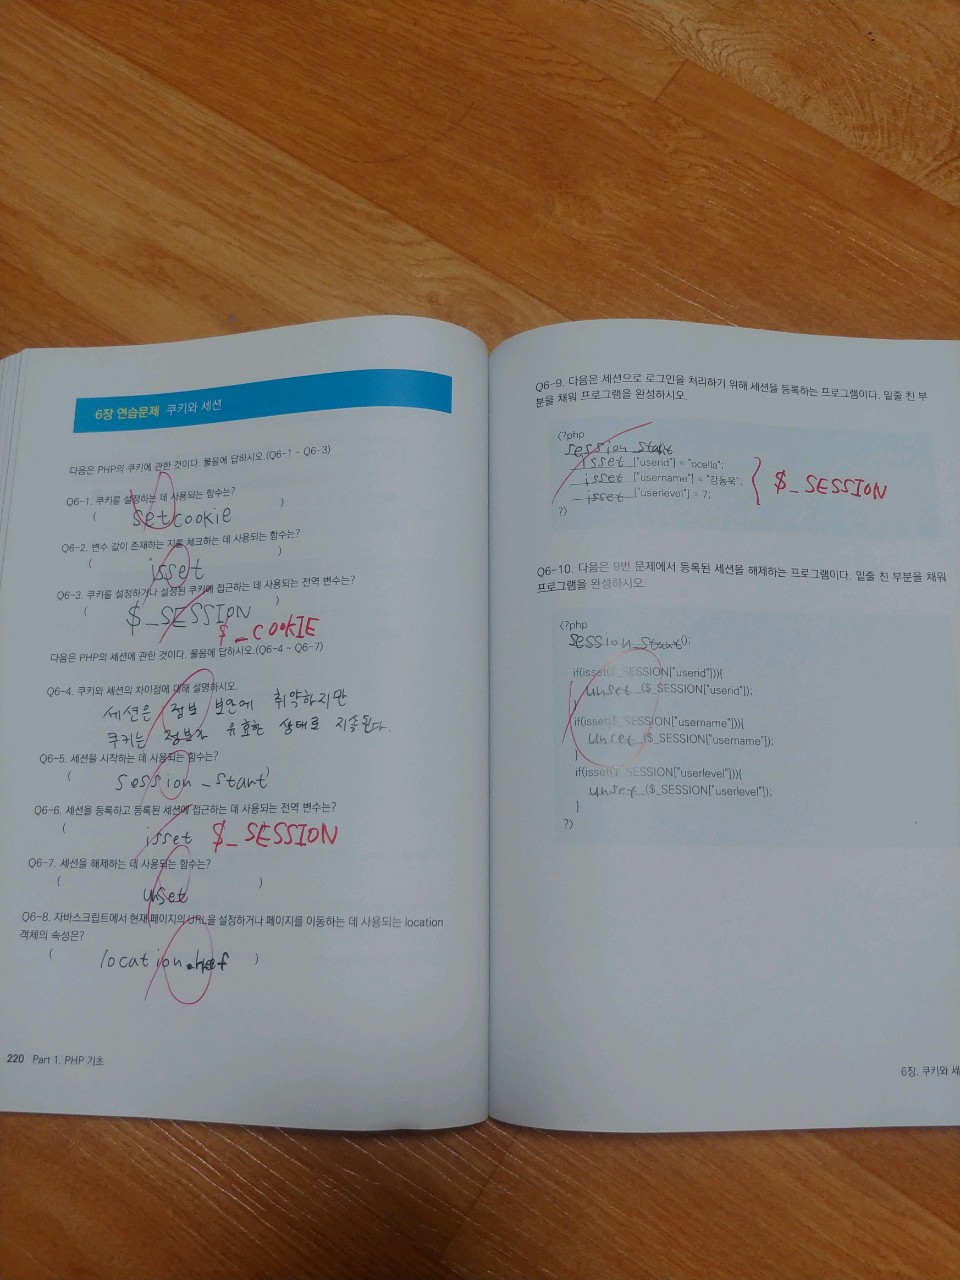 6장 연습문제 쿠키와 세션
다음은 PHP의 쿠키에 관한 것이다. 물음에 답하시오.(Q6-1 ~ Q6-3)
Q6-1. 쿠키를 설정하는 데 사용되는 함수는?
( setcookie )
Q6-2. 변수 값이 존재하는 지를 체크하는 데 사용되는 함수는?
( isset )
Q6-3. 쿠키를 설정하거나 설정된 쿠키에 접근하는 데 사용되는 전역 변수는?
( $_SESSION )
$_COOKIE
다음은 PHP의 세션에 관한 것이다. 물음에 답하시오.(Q6-4 ~ Q6-7)
Q6-4. 쿠키와 세션의 차이점에 대해 설명하시오.
세션은 정보 보안에 취약하지만
쿠키는 정보가 유효한 상태로 지속된다.
Q6-5. 세션을 시작하는 데 사용되는 함수는?
( session_start )
Q6-6. 세션을 등록하고 등록된 세션에 접근하는 데 사용되는 전역 변수는?
( isset $_SESSION
Q6-7. 세션을 해제하는 데 사용되는 함수는?
( unset )
Q6-8. 자바스크립트에서 현재 페이지의 URL을 설정하거나 페이지를 이동하는 데 사용되는 location
객체의 속성은?
( location.href )
220 Part 1. PHP 기초
Q6-9. 다음은 세션으로 로그인을 처리하기 위해 세션을 등록하는 프로그램이다. 밑줄 친 부
분을 채워 프로그램을 완성하시오.
<?php
session_start
isset ["userid"] =
isset ["username"] = "강동욱";
isset ["userlevel"] = 7;
$_SESSION
?>
Q6-10. 다음은 9번 문제에서 등록된 세션을 해제하는 프로그램이다. 밑줄 친 부분을 채워
프로그램을 완성하시오.
<?php
session_start();
if(isset($_SESSION["userid"])){
unset ($_SESSION["userid"]);
}
if(isset($_SESSION["username"])){
unset ($_SESSION["username"]);
}
if(isset($_SESSION["userlevel"])){
unset ($_SESSION["userlevel"]);
}
?>
6장. 쿠키와 세